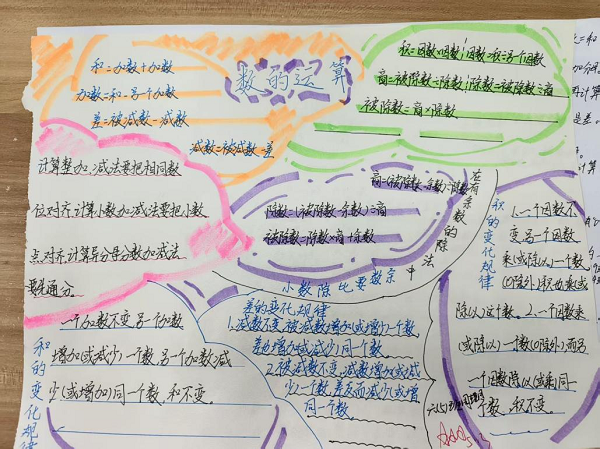 数的运算
和=加数+加数
加数=和-另一个加数
差=被减数-减数
减数=被减数-差
积=因数×因数 因数=积÷另一个因数
商=被除数÷除数 除数=被除数÷商
被除数=商×除数
计算整加、减法要把相同数
位对齐计算小数加减法要把小数
点对齐计算异分母分数加减法
要先通分
在有余数的除法中
商=(被除数-余数)÷除数
除数=(被除数-余数)÷商
被除数=除数×商+余数
积的变化规律
1.一个因数不
变另一个因数
乘(或除以)一个数
(0除外)积也乘(或
除以)这个数。2.一个因数乘
(或除以)一个数(0除外)而另
一个因数除以(或乘)同一
个数,积不变。
小数除比要数宗
差的变化规律
1.减数不变被减数增加(或增少)一个数
差也增加(或减少)同一个数
2.被减数不变,减数增加(或减
少)一个数差反而减少(或增
同一个数。
和的变化规律
一个加数不变另一个加数
增加(或减少)一个数,另一个加数减
少(或增加)同一个数,和不变。